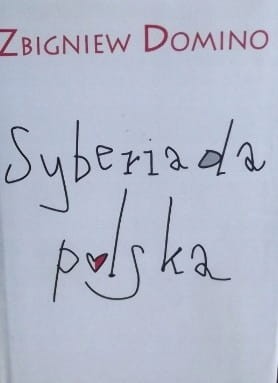 ZBIGNIEW DOMINO
Syberiada
polska